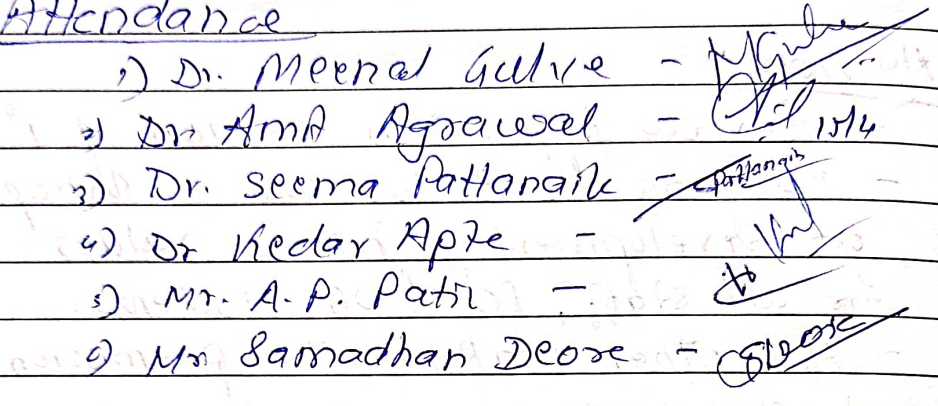 Attendance
1) Dr. Meenal Gulve - MGulve
2) Dr Amit Agrawal - 15/4
3) Dr. Seema Pattanaik - Pattanaik
4) Dr Kedar Apte -
5) Mr. A.P. Patil -
6) Mr Samadhan Deore - SDeore